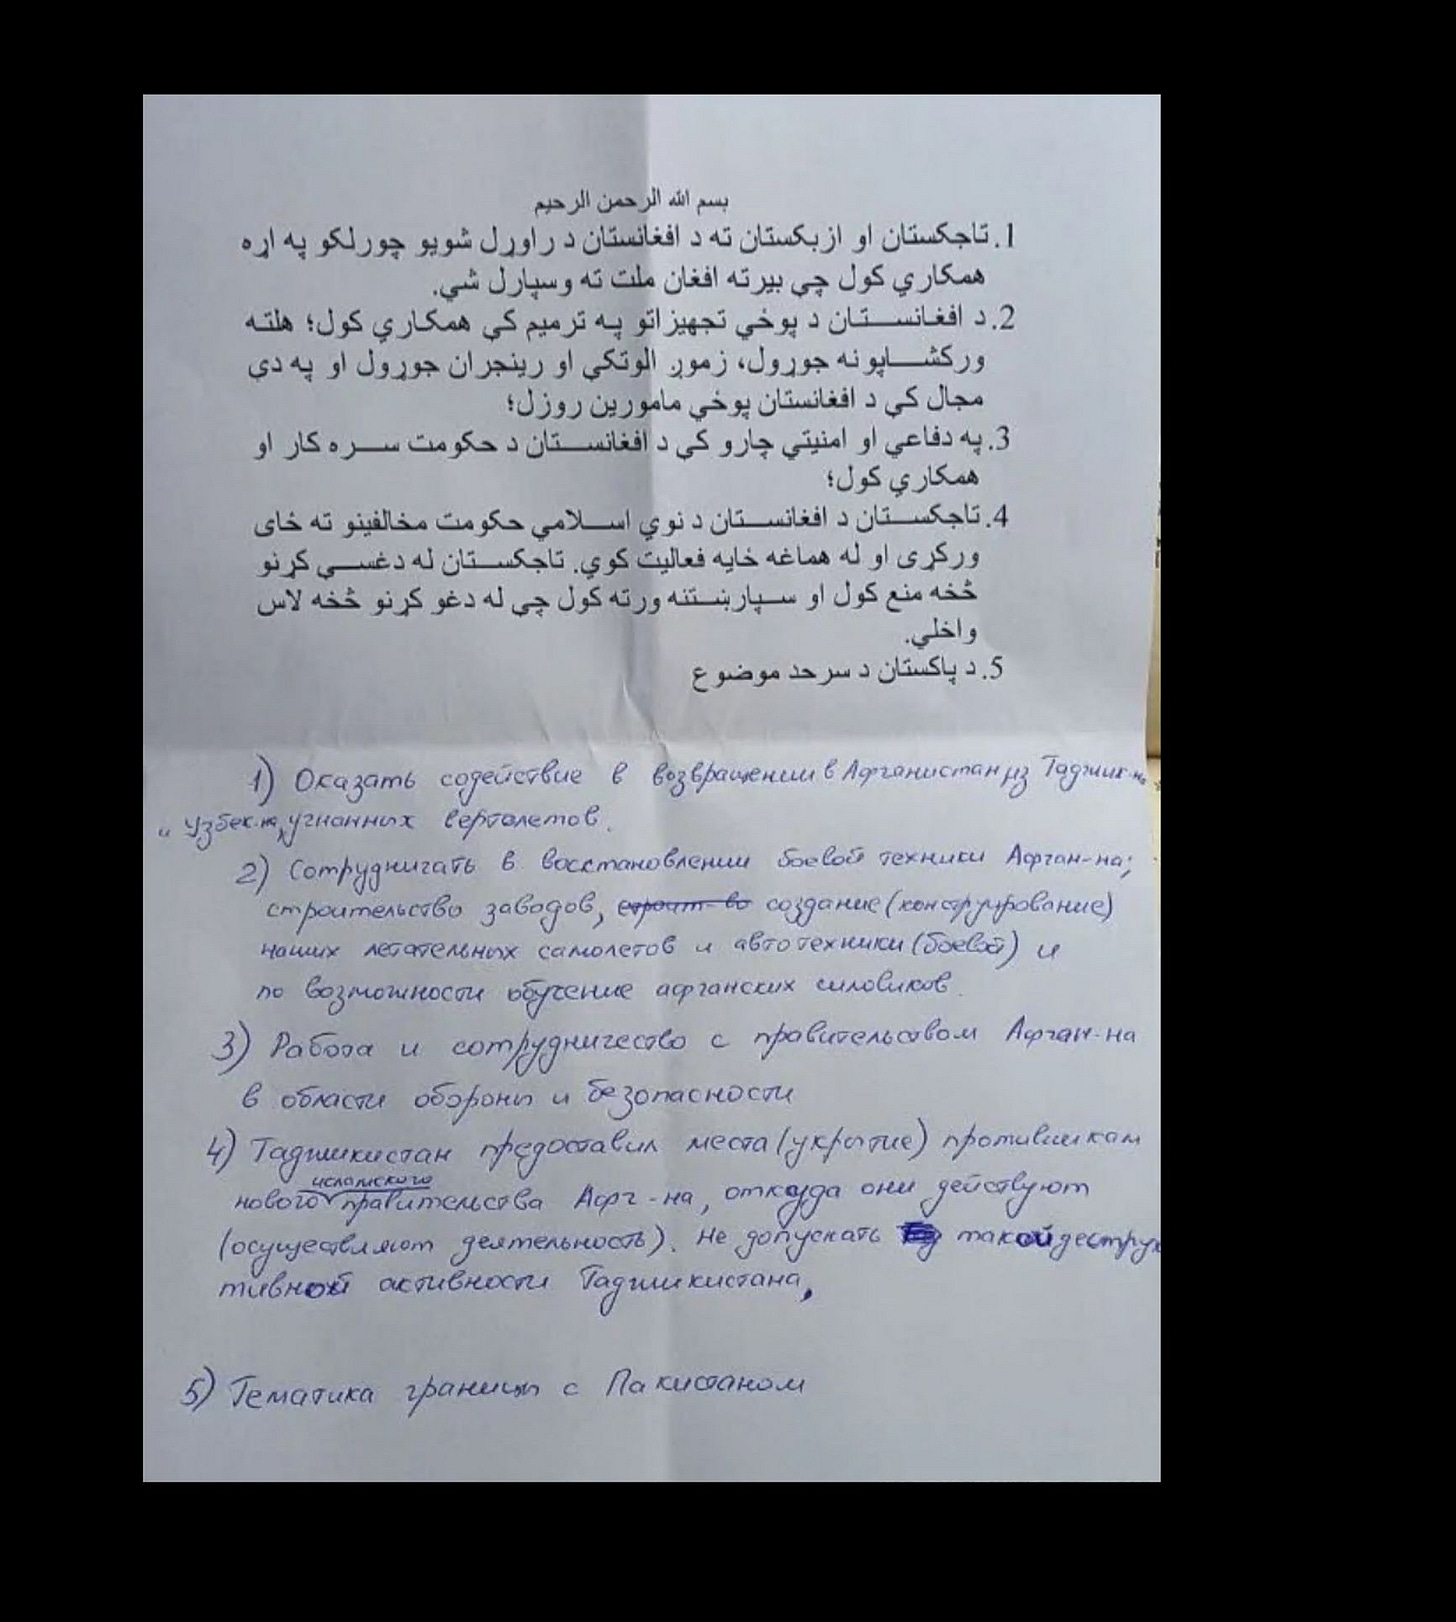 بسم الله الرحمن الرحيم
1. تاجکستان او ازبکستان ته د افغانستان د راوړل شويو چورلکو په اړه
همکاري کول چې بيرته افغان ملت ته وسپارل شي.
2. د افغانستان د پوځي تجهيزاتو په ترميم کې همکاري کول؛ هلته
ورکشاپونه جوړول، زموږ الوتکې او رينجران جوړول او په دې
مجال کې د افغانستان پوځي مامورين روزل؛
3. په دفاعي او امنيتي چارو کې د افغانستان د حکومت سره کار او
همکاري کول؛
4. تاجکستان د افغانستان د نوي اسلامي حکومت مخالفينو ته ځای
ورکړی او له هماغه ځايه فعاليت کوي. تاجکستان له دغسې کړنو
څخه منع کول او سپارښتنه ورته کول چې له دغو کړنو څخه لاس
واخلي.
5. د پاکستان د سرحد موضوع
1) Оказать содействие в возвращении в Афганистан из Таджик-на
и Узбек-на, угнанных вертолетов.
2) Сотрудничать в восстановлении боевой техники Афган-на;
строительство заводов, строит-во создание (конструирование)
наших летательных самолетов и автотехники (боевой) и
по возможности обучение афганских силовиков.
3) Работа и сотрудничество с правительством Афган-на
в области обороны и безопасности
4) Таджикистан предоставил места (укрытие) противникам
исламского
нового правительства Афг-на, откуда они действуют
(осуществляют деятельность). Не допускать такой деструк
тивной активности Таджикистана,
5) Тематика границы с Пакистаном